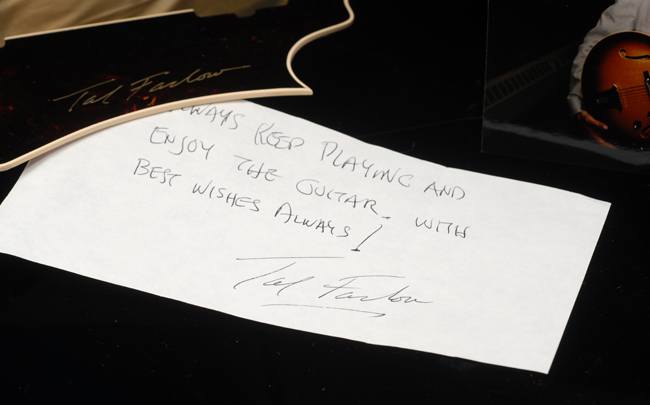 Tal Farlow
ALWAYS KEEP PLAYING AND
ENJOY THE GUITAR. WITH
BEST WISHES ALWAYS!
Tal Farlow